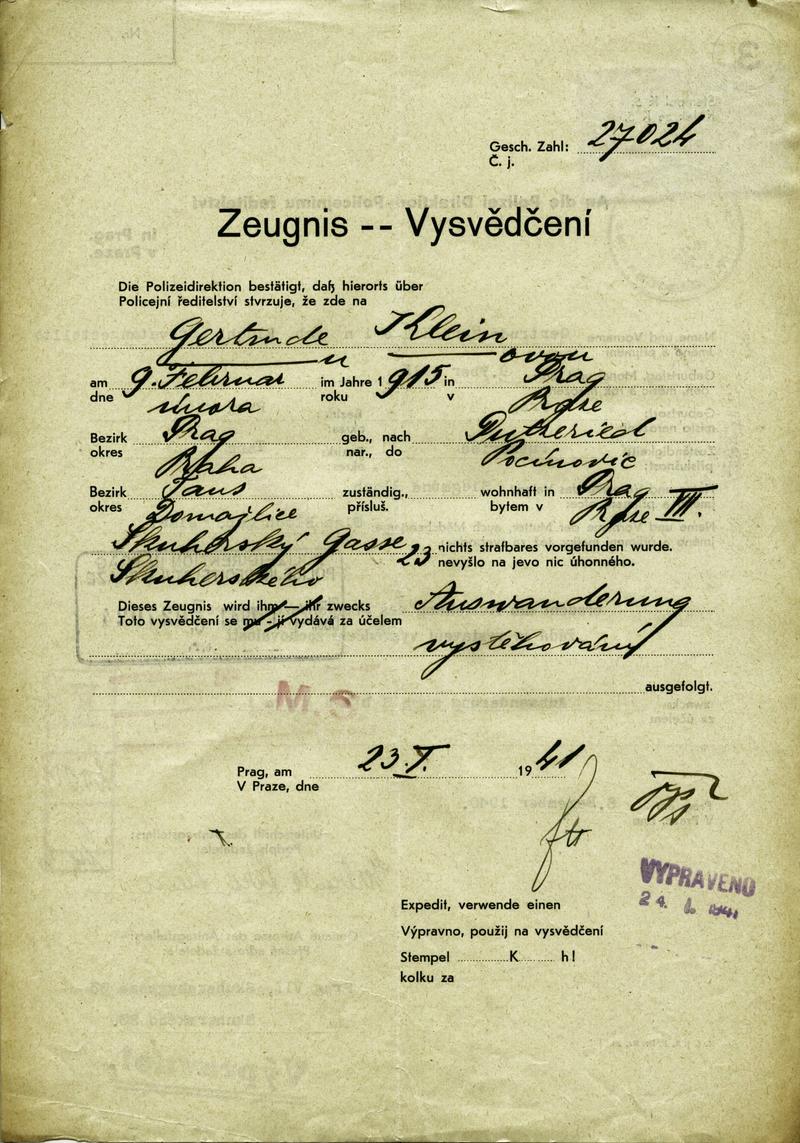 Gesch. Zahl: 27024
Č. j.
Zeugnis -- Vysvědčení
Die Polizeidirektion bestätigt, daß hierorts über
Policejní ředitelství stvrzuje, že zde na
Gertrude Klein
u ovou
am 9. Februar im Jahre 1915 in Prag
dne února roku v Praze
Bezirk Prag geb., nach
okres Praha nar., do Pocinovic
Bezirk Taus zuständig., wohnhaft in Prag
okres Domažlice přísluš. bytem v Praze VII.
Skuherský Gasse 23 nichts strafbares vorgefunden wurde.
Skuherského nevyšlo na jevo nic úhonného.
Dieses Zeugnis wird ihm — ihr zwecks Auswanderung
Toto vysvědčení se mu - jí vydává za účelem
vystěhování
ausgefolgt.
M. S
Prag, am 23. I. 1941
V Praze, dne
VYPRAVENO
24. I. 1941
Expedit, verwende einen
Výpravno, použij na vysvědčení
Stempel K h!
kolku za